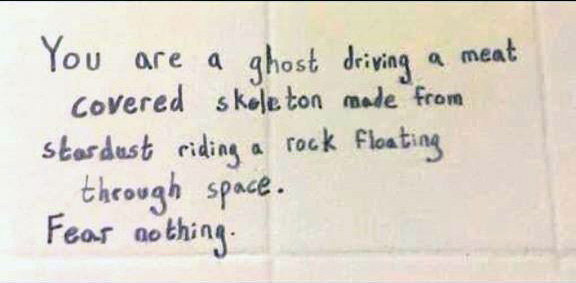 You are a ghost driving a meat
covered skeleton made from
stardust riding a rock floating
through space.
Fear nothing.